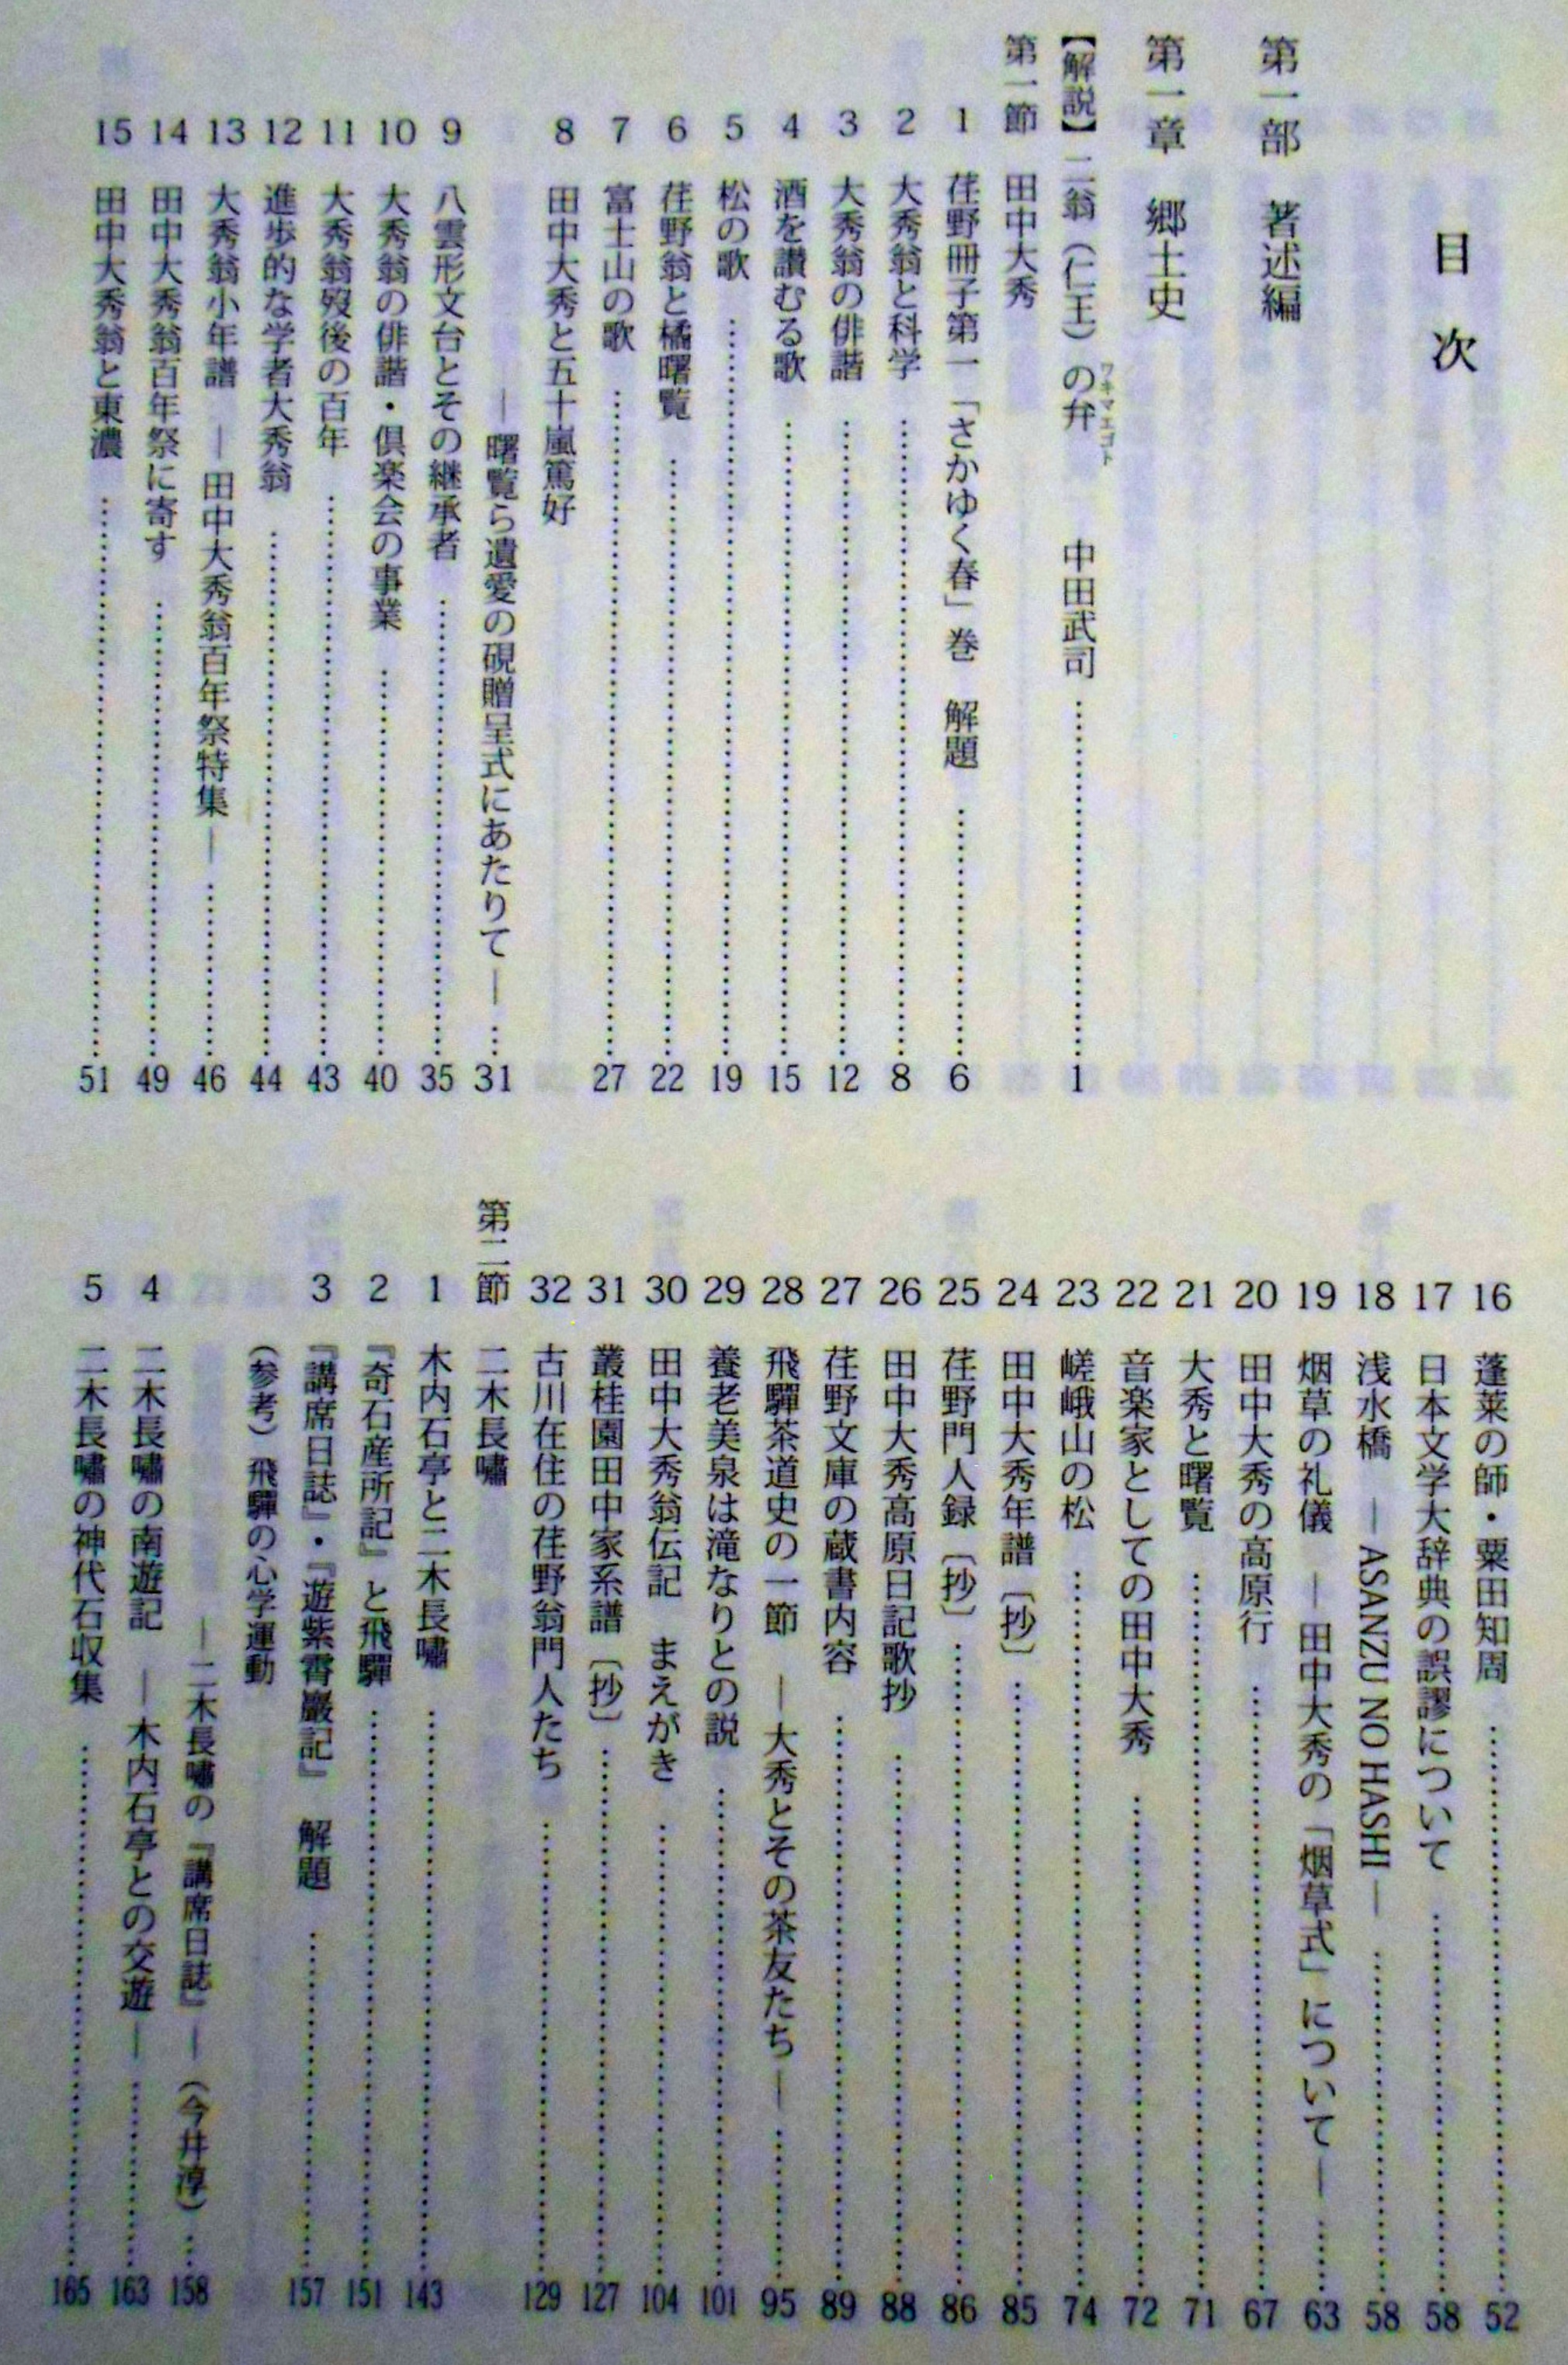 目次
第一部　著述編
第一章　郷土史
【解説】二翁（仁王）の弁　中田武司 …… 1
ワキマエゴト
第一節　田中大秀
1　荏野冊子第一「さかゆく春」巻　解題 …… 6
2　大秀翁と科学 …… 8
3　大秀翁の俳諧 …… 12
4　酒を讃むる歌 …… 15
5　松の歌 …… 19
6　荏野翁と橘曙覧 …… 22
7　富士山の歌 …… 27
8　田中大秀と五十嵐篤好
―曙覧ら遺愛の硯贈呈式にあたりて― …… 31
9　八雲形文台とその継承者 …… 35
10　大秀翁の俳諧・倶楽会の事業 …… 40
11　大秀翁歿後の百年 …… 43
12　進歩的な学者大秀翁 …… 44
13　大秀翁小年譜　―田中大秀翁百年祭特集― …… 46
14　田中大秀翁百年祭に寄す …… 49
15　田中大秀翁と東濃 …… 51
16　蓬莱の師・粟田知周 …… 52
17　日本文学大辞典の誤謬について …… 58
18　浅水橋　―ASANZU NO HASHI― …… 58
19　烟草の礼儀　―田中大秀の「烟草式」について― …… 63
20　田中大秀の高原行 …… 67
21　大秀と曙覧 …… 71
22　音楽家としての田中大秀 …… 72
23　嵯峨山の松 …… 74
24　田中大秀年譜〔抄〕 …… 85
25　荏野門人録〔抄〕 …… 86
26　田中大秀高原日記歌抄 …… 88
27　荏野文庫の蔵書内容 …… 89
28　飛驒茶道史の一節　―大秀とその茶友たち― …… 95
29　養老美泉は滝なりとの説 …… 101
30　田中大秀翁伝記　まえがき …… 104
31　叢桂園田中家系譜〔抄〕 …… 127
32　古川在住の荏野翁門人たち …… 129
第二節　二木長嘯
1　木内石亭と二木長嘯 …… 143
2　『奇石産所記』と飛驒 …… 151
3　『講席日誌』・『遊紫霄巌記』　解題 …… 157
（参考）飛驒の心学運動
―二木長嘯の『講席日誌』―（今井淳） …… 158
4　二木長嘯の南遊記　―木内石亭との交遊― …… 163
5　二木長嘯の神代石収集 …… 165